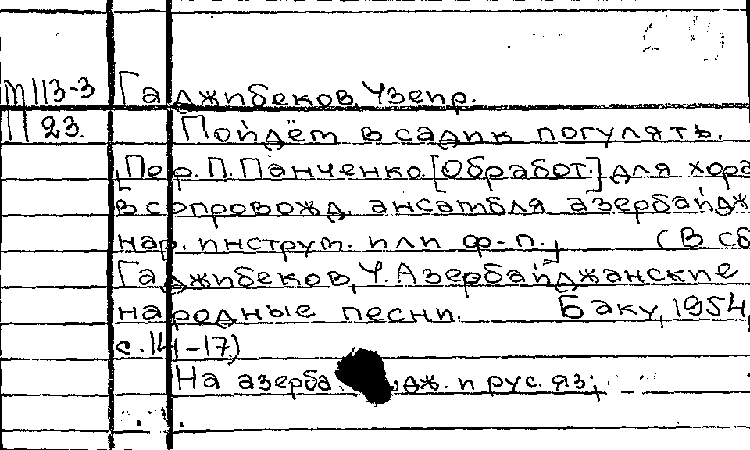 М 113-3 Гаджибеков, Узеир.
П 23. Пойдём в садик погулять.
[Пер. П. Панченко. [Обработ.] для хора
в сопровожд. ансамбля азербайдж
нар. инструм. или ф-п.] (В сб
Гаджибеков, У. Азербайджанские
народные песни. Баку, 1954,
с. 14-17)
На азербайдж. и рус. яз.